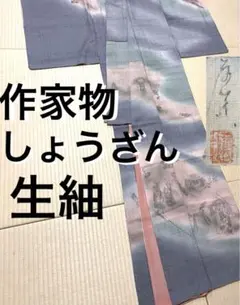 作家物
しょうざん
生紬